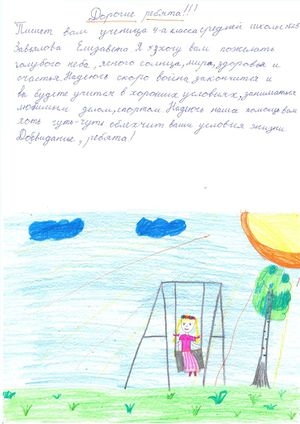 Дорогие ребята!!!
Пишет вам ученица 4-а класса средней школы №25
Завьялова Елизавета. Я хочу вам пожелать
голубого неба, ясного солнца, мира, здоровья и
счастья. Надеюсь скоро война закончится и
вы будете учится в хороших условиях, заниматься
любимым делом, спортом. Надеюсь наша помощь вам
хоть чуть-чуть облехчит ваши условия жизни
Досвидание, ребята!